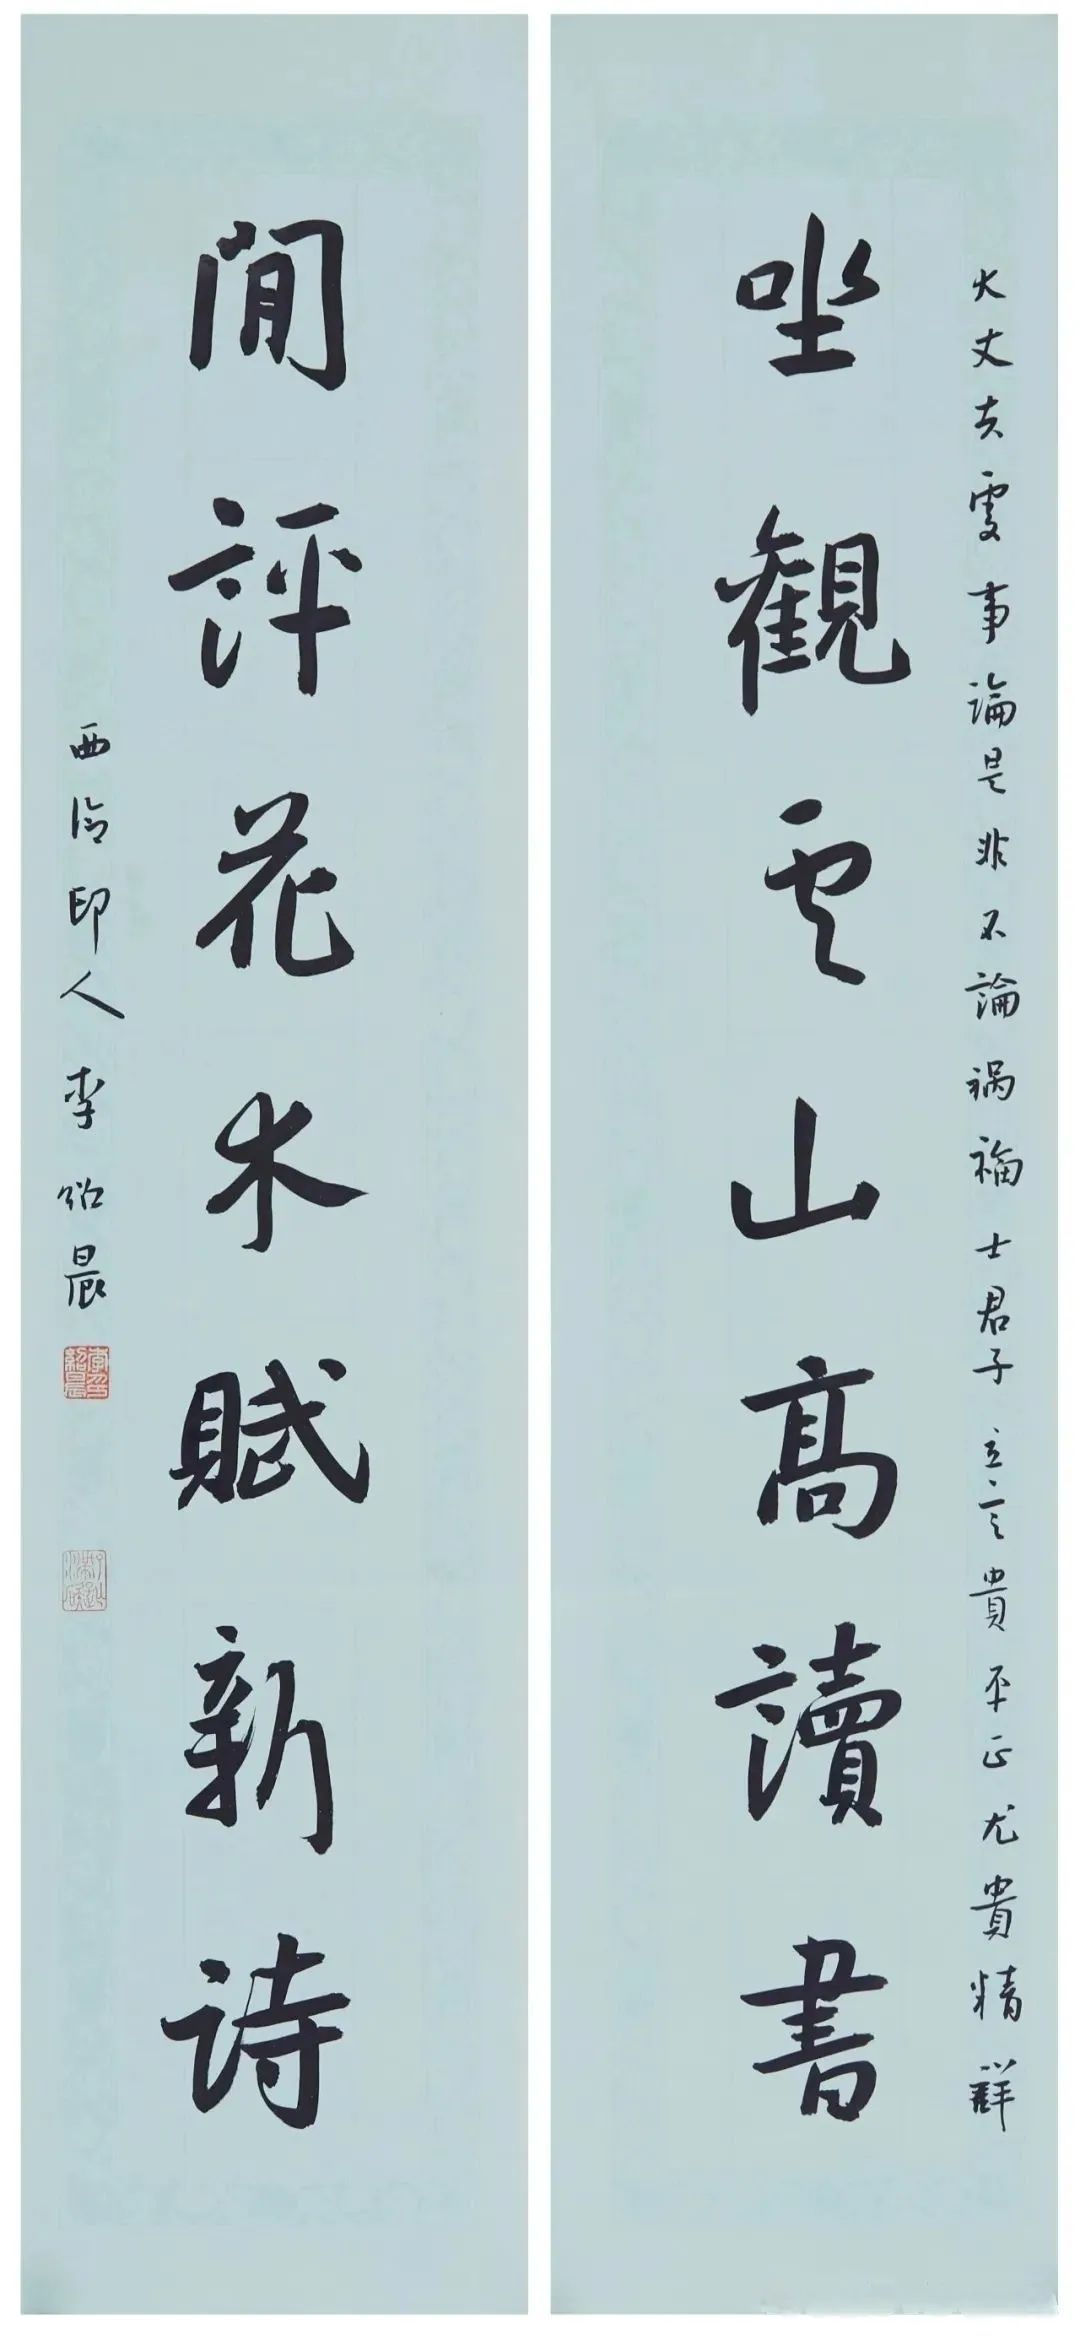 大丈夫處事論是非不論禍福士君子立言貴平正尤貴精詳
坐觀雲山高讀書
閒評花木賦新詩
西泠印人李紹晨